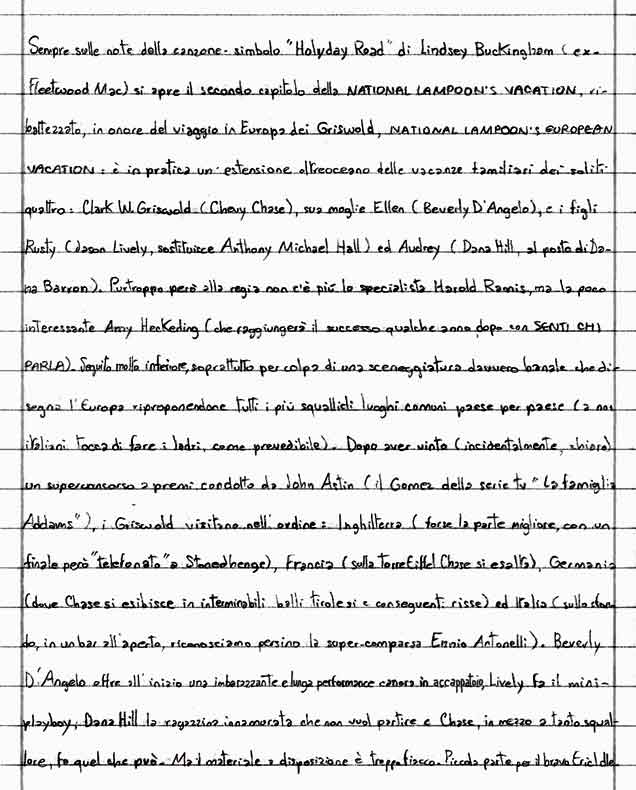 Sempre sulle note della canzone-simbolo "Holyday Road" di Lindsey Buckingham (ex-
Fleetwood Mac) si apre il secondo capitolo della NATIONAL LAMPOON'S VACATION, ri-
battezzato, in onore del viaggio in Europa dei Griswold, NATIONAL LAMPOON'S EUROPEAN
VACATION: è in pratica un'estensione oltreoceano delle vacanze familiari dei soliti
quattro: Clark W. Griswold (Chevy Chase), sua moglie Ellen (Beverly D'Angelo), e i figli
Rusty (Jason Lively, sostituisce Anthony Michael Hall) ed Audrey (Dana Hill, al posto di Da-
na Barron). Purtroppo però alla regia non c'è più lo specialista Harold Ramis, ma la poco
interessante Amy Heckeding (che raggiungerà il successo qualche anno dopo con SENTI CHI
PARLA). Seguito molto inferiore, soprattutto per colpa di una sceneggiatura davvero banale che di-
segna l'Europa riproponendone tutti i più squallidi luoghi comuni paese per paese (a noi
italiani tocca di fare i ladri, come prevedibile). Dopo aver vinto (incidentalmente, chiaro)
un superconcorso a premi condotto da John Astin (il Gomez della serie tv "La famiglia
Addams"), i Griswold visitano nell'ordine: Inghilterra (forse la parte migliore, con un
finale però "telefonato" a Stonedhenge), Francia (sulla Torre Eiffel Chase si esalta), Germania
(dove Chase si esibisce in interminabili balli tirolesi e conseguenti risse) ed Italia (sullo sfon-
do, in un bar all'aperto, riconosciamo persino la super-comparsa Ennio Antonelli). Beverly
D'Angelo offre all'inizio una imbarazzante e lunga performance canora in accappatoio, Lively fa il mini-
playboy, Dana Hill la ragazzina innamorata che non vuol partire e Chase, in mezzo a tanto squal-
lore, fa quel che può. Ma il materiale a disposizione è troppo fiacco. Piccola parte per il bravo Eric Idle.